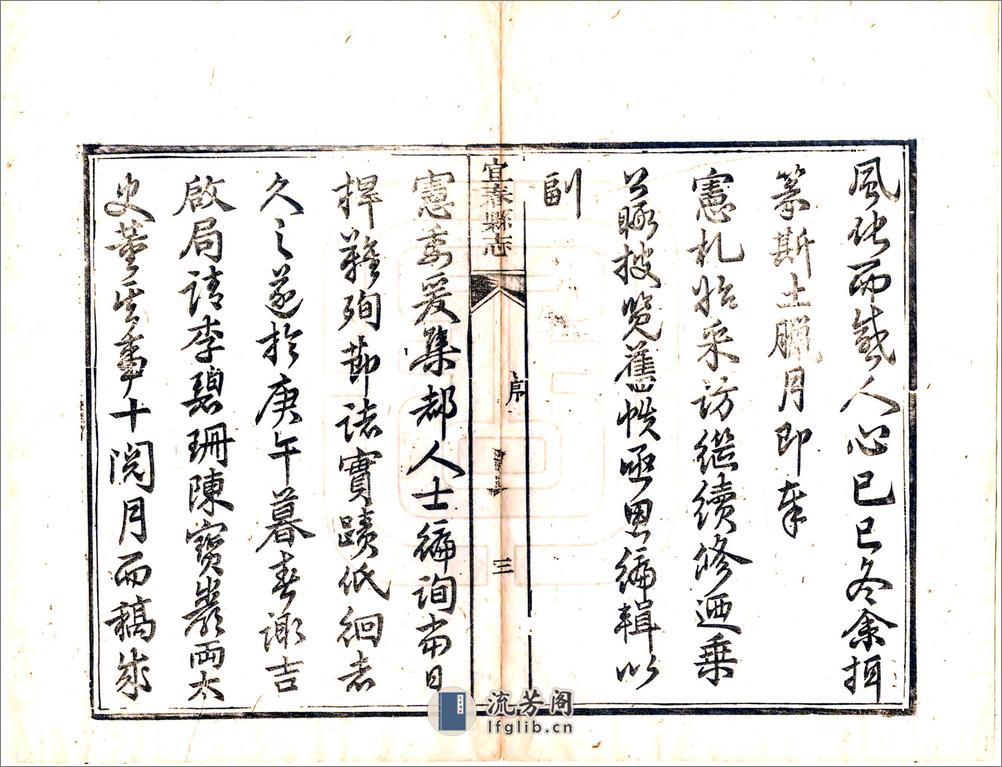 風化而感人心己巳冬余捧
篆斯土臘月即奉
憲札始采訪繼續修迺乘
公暇披覽舊帙亟思編輯以
副
宜春縣志
序
三
憲委爰集都人士徧詢當日
捍難殉節諸實蹟低徊者
久之遂於庚午暮春諏吉
啟局請李碧珊陳寶巖兩太
史董其事十閱月而稿成
流芳阁
lfglib.com